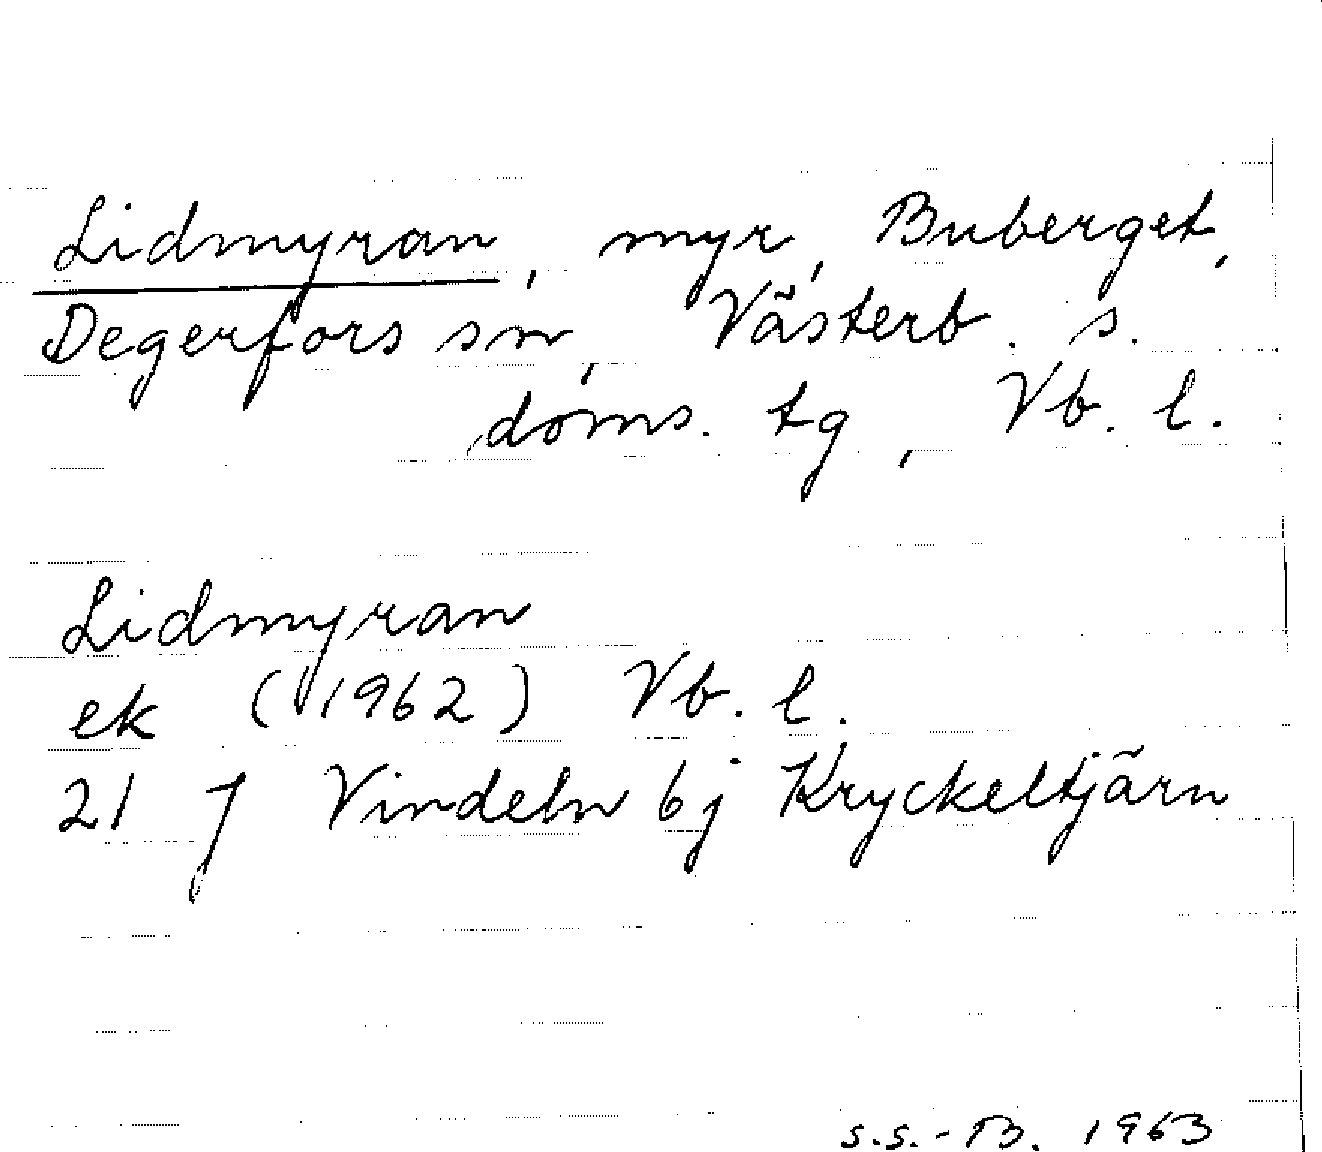 Lidmyran, myr, Buberget,
Degerfors sn, Västerb. s.
doms. tg, Vb. l.
Lidmyran
ek (1962) Vb. l.
21 J Vindeln 6j Kryckeltjärn
S.S.-B. 1963